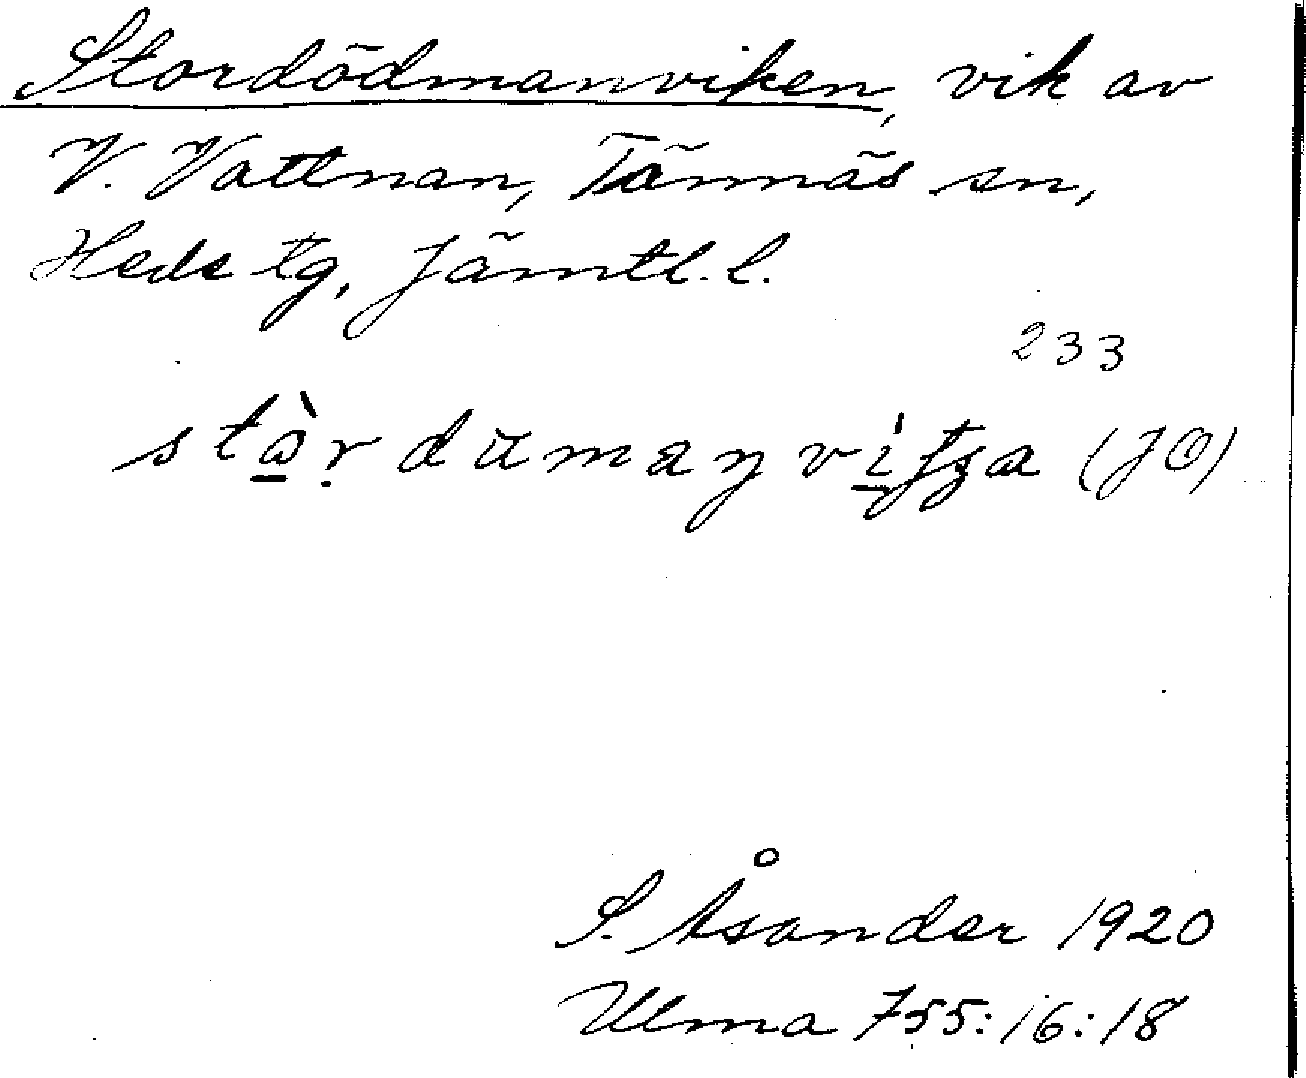 Stordödmanviken, vik av
V. Vattnan, Tännäs sn,
Hede tg, Jämtl. l.
233
(JO)
S. Åsander 1920
Ulma 755:16:18